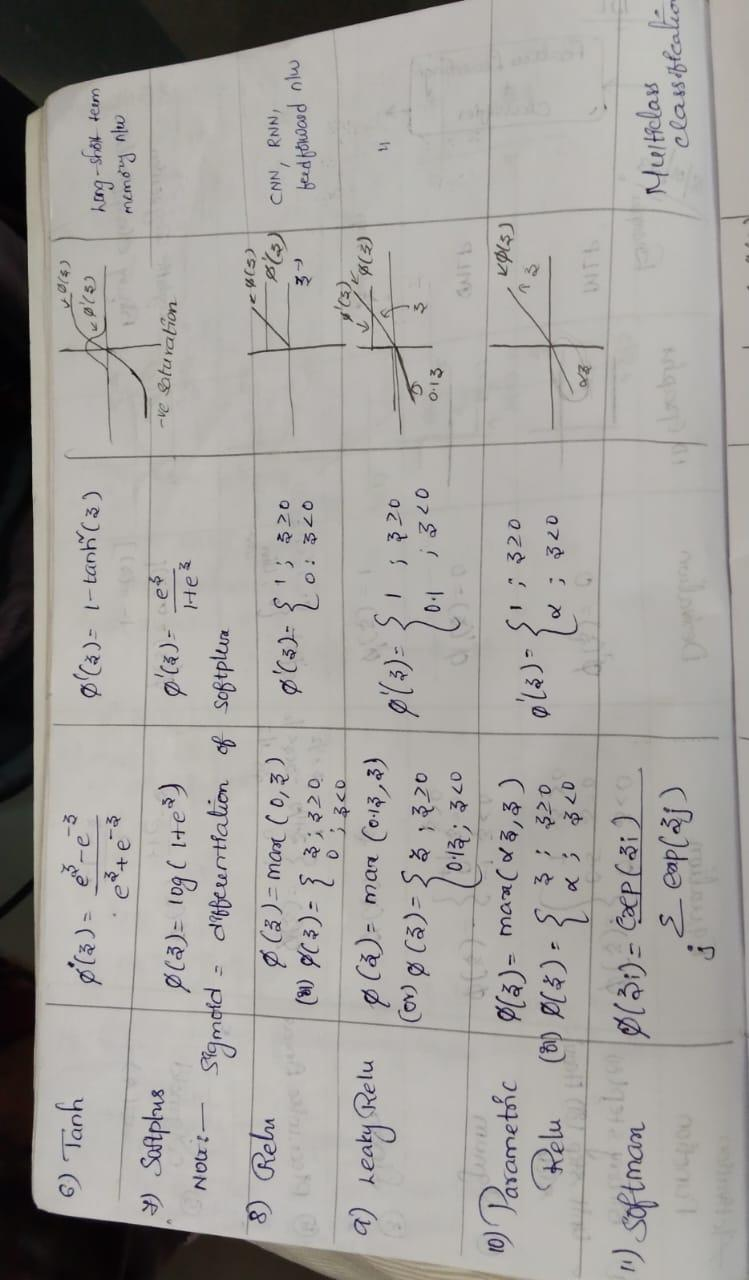 6) Tanh
φ(z) = e^z − e^−z / e^z + e^−z
φ'(z) = 1 − tanh²(z)
φ(z)
φ'(z)
Long-short term
memory n/w
7) Softplus
φ(z) = log(1+e^z)
φ'(z) = e^z / 1+e^z
-ve saturation
Note:— Sigmoid = differentiation of softplus
8) Relu
φ(z) = max(0, z)
(or) φ(z) = { z ; z ≥ 0
0 ; z < 0
φ'(z) = { 1 ; z ≥ 0
0 ; z < 0
φ(z)
φ'(z)
z→
CNN, RNN,
feedforward n/w
9) Leaky Relu
φ(z) = max(0.1z, z)
(or) φ(z) = { z ; z ≥ 0
0.1z ; z < 0
φ'(z) = { 1 ; z ≥ 0
0.1 ; z < 0
φ'(z)
φ(z)
z
0.1z
"
10) Parametric
Relu
φ(z) = max(αz, z)
(or) φ(z) = { z ; z ≥ 0
α ; z < 0
φ'(z) = { 1 ; z ≥ 0
α ; z < 0
φ(z)
z
αz
11) Softmax
φ(zi) = exp(zi) / Σ j exp(zj)
Multiclass
classification